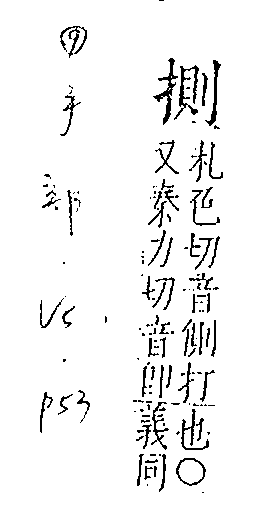 揁
札色切音側打也○
又秦力切音即義同
⑨手部.V5.P53